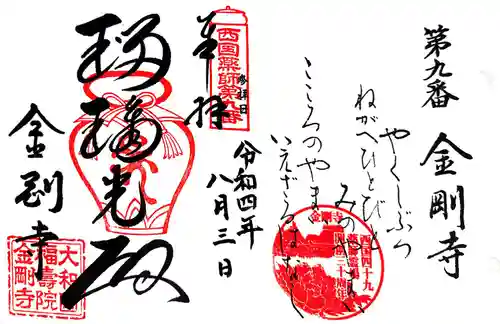 第九番
金剛寺
やくしぶつ
ねがへひとびと
みのやまい
こころのやまい
いえざるはなし
金剛寺
西国四十九
奉拝
西国薬師第九番
参拝日
令和四年
八月三日
瑠璃光殿
金剛寺
大和国
福壽院
金剛寺